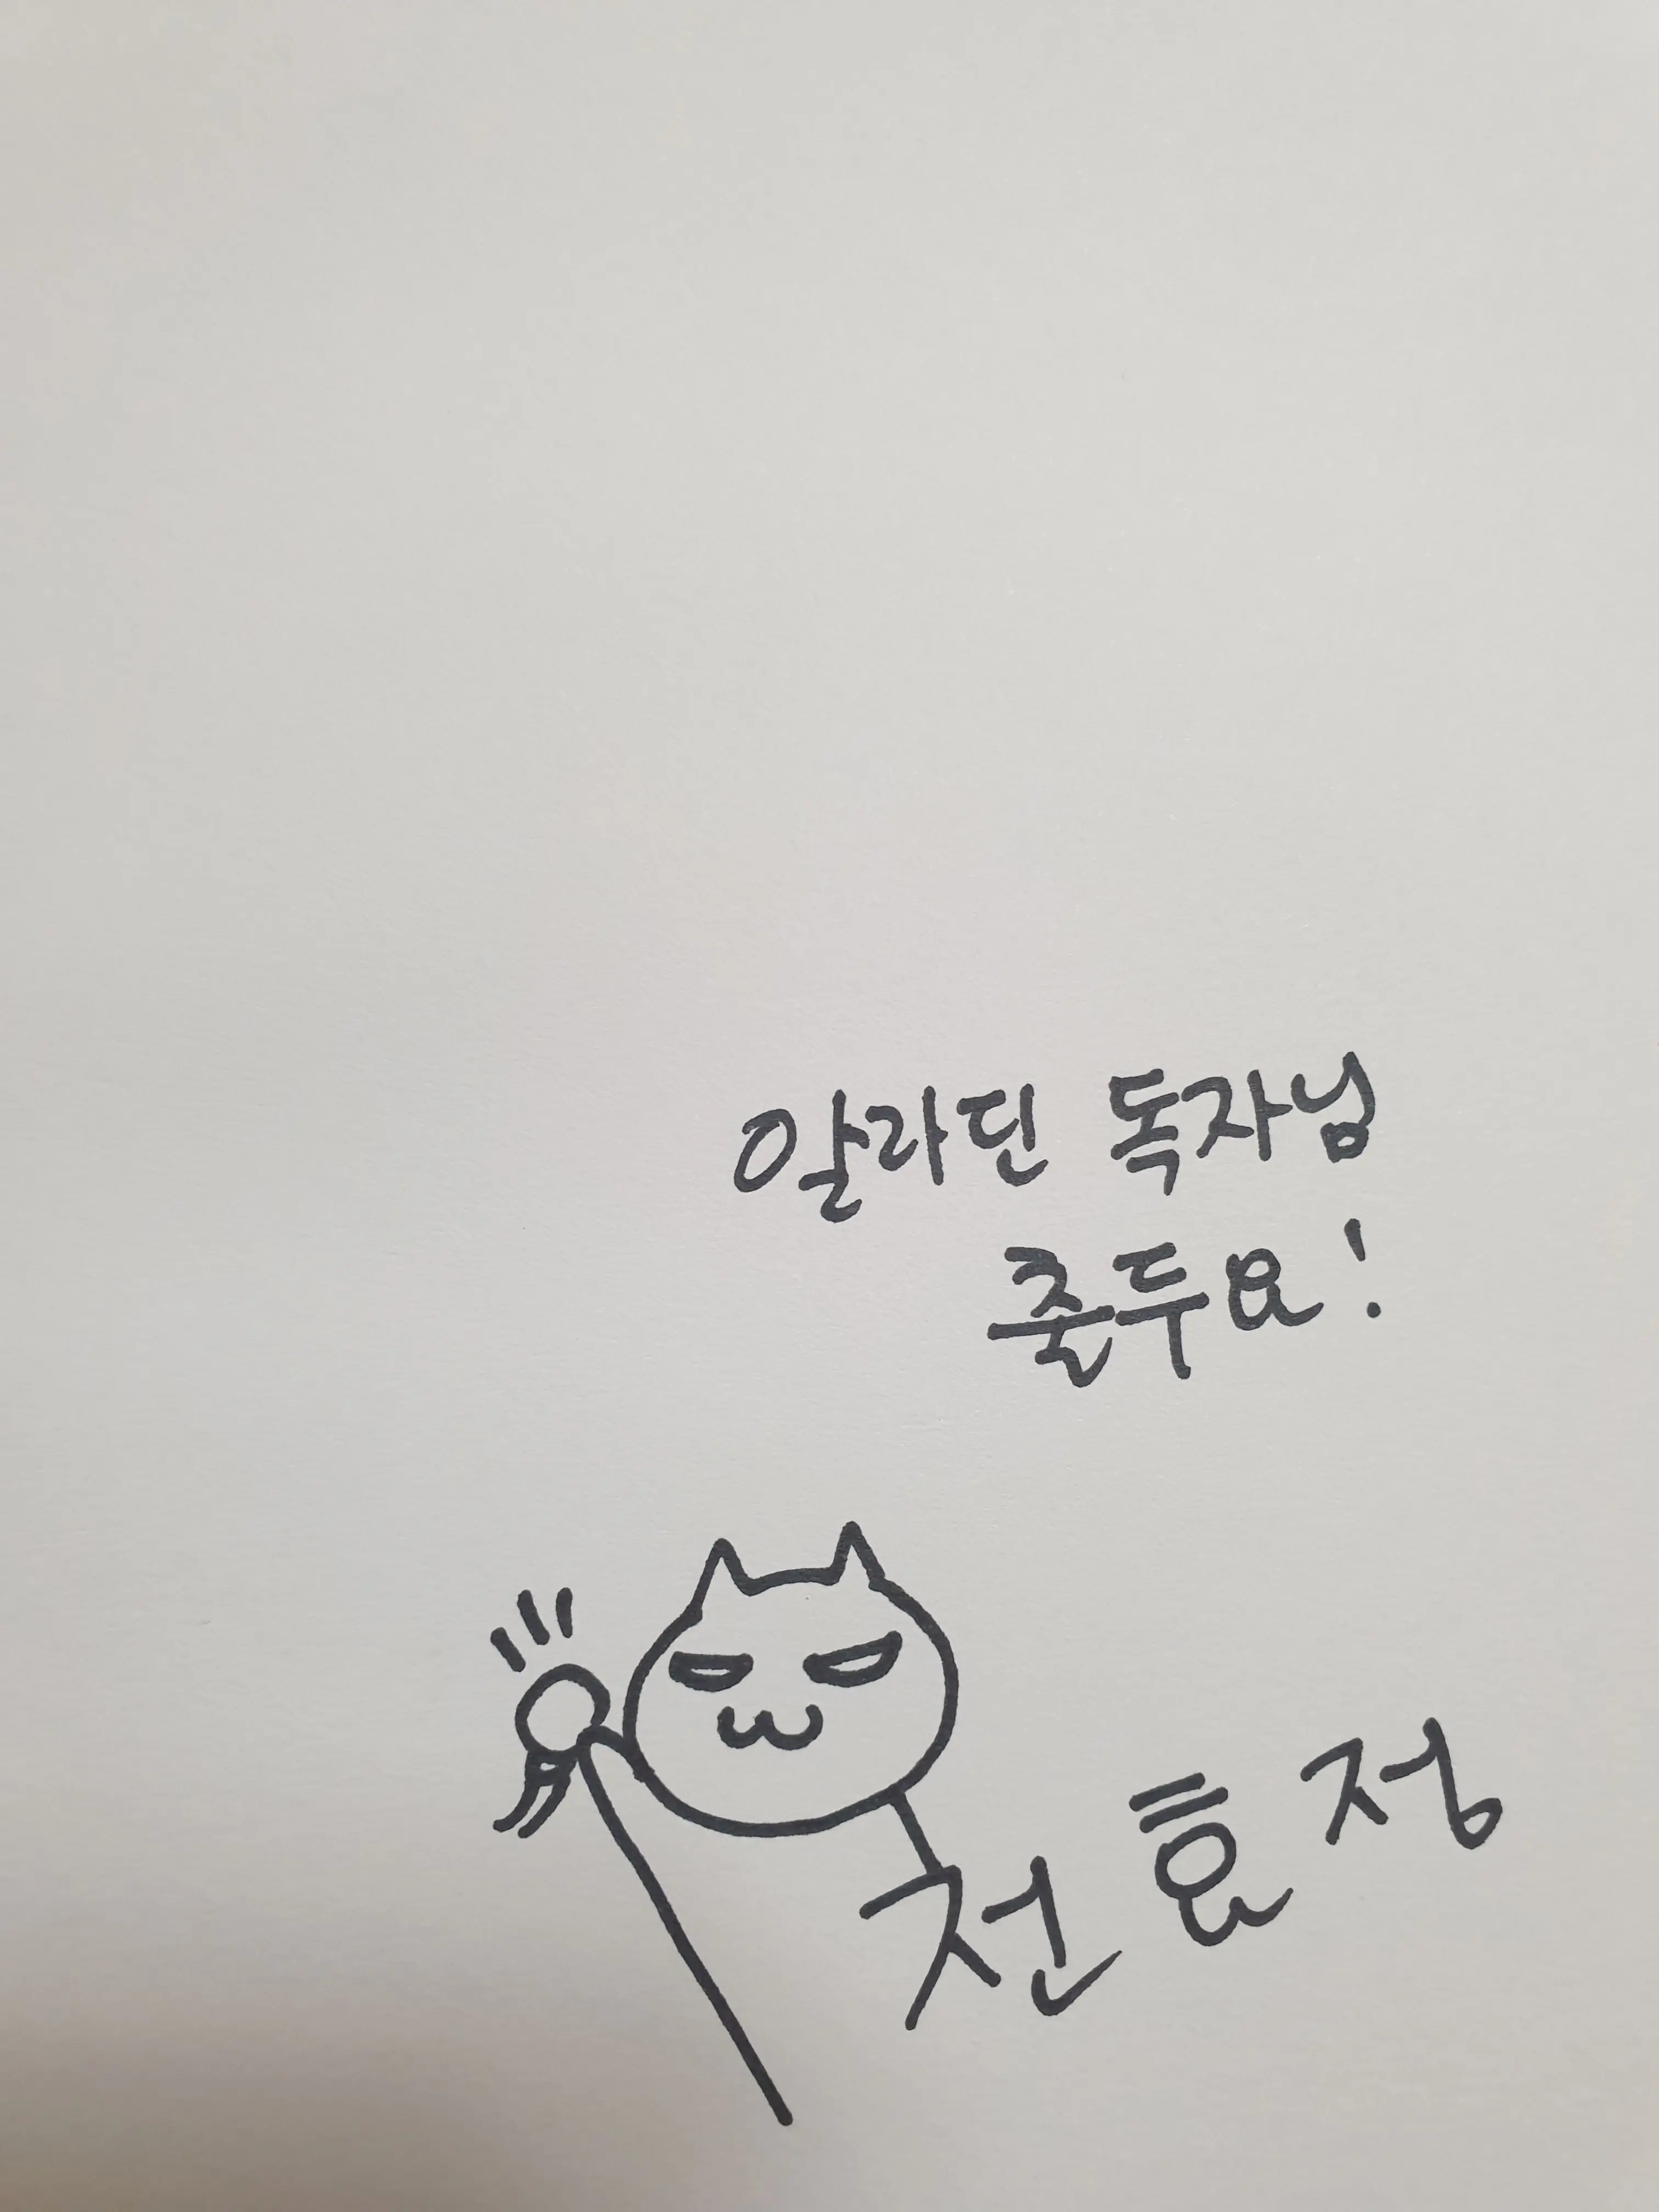 알라딘 독자님
존두요!
전효정